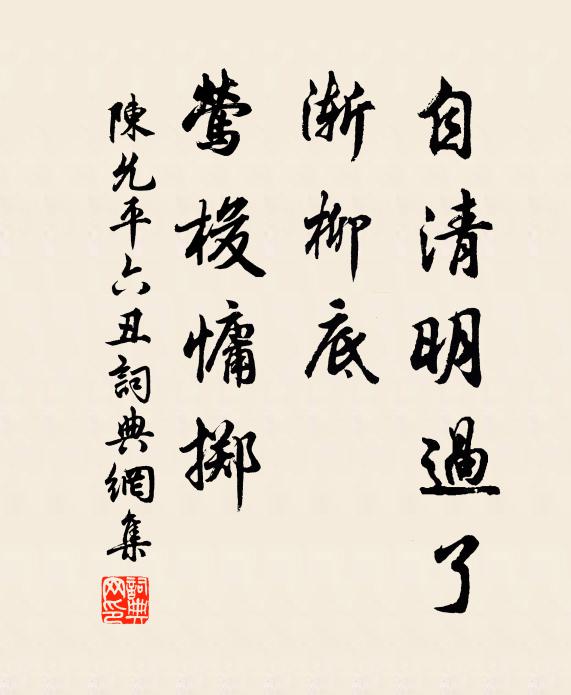 自清明過了
漸柳底
鶯梭慵擲
陳允平六丑詞典網集
詞典網印